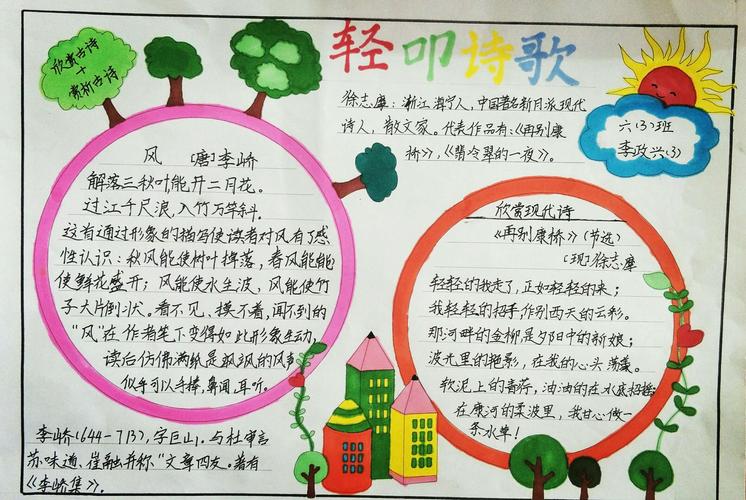 轻叩诗歌
欣赏古诗
+
赏析古诗
徐志摩：浙江海宁人，中国著名新月派现代
诗人，散文家。代表作品有：《再别康
桥》，《翡冷翠的一夜》。
六(3)班
李政兴(3)
风 〔唐〕李峤
解落三秋叶，能开二月花。
过江千尺浪，入竹万竿斜。
这首通过形象的描写使读者对风有了感
性认识：秋风能使树叶掉落，春风能能
使鲜花盛开；风能使水生波，风能使竹
子大片倒状。看不见、摸不着，闻不到的
"风"在作者笔下变得如此形象生动，
读后仿佛满纸是飒飒的风声
似乎可以手捧，鼻闻，耳听。
李峤(644-713)，字巨山，与杜审言
苏味道、崔融并称"文章四友。著有
《李峤集》。
欣赏现代诗
《再别康桥》(节选)
〔现〕徐志摩
轻轻的我走了，正如轻轻的来；
我轻轻的招手，作别西天的云彩。
那河畔的金柳，是夕阳中的新娘；
波光里的艳影，在我的心头荡漾。
软泥上的青荇，油油的在水底招摇；
在康河的柔波里，我甘心做一
条水草！